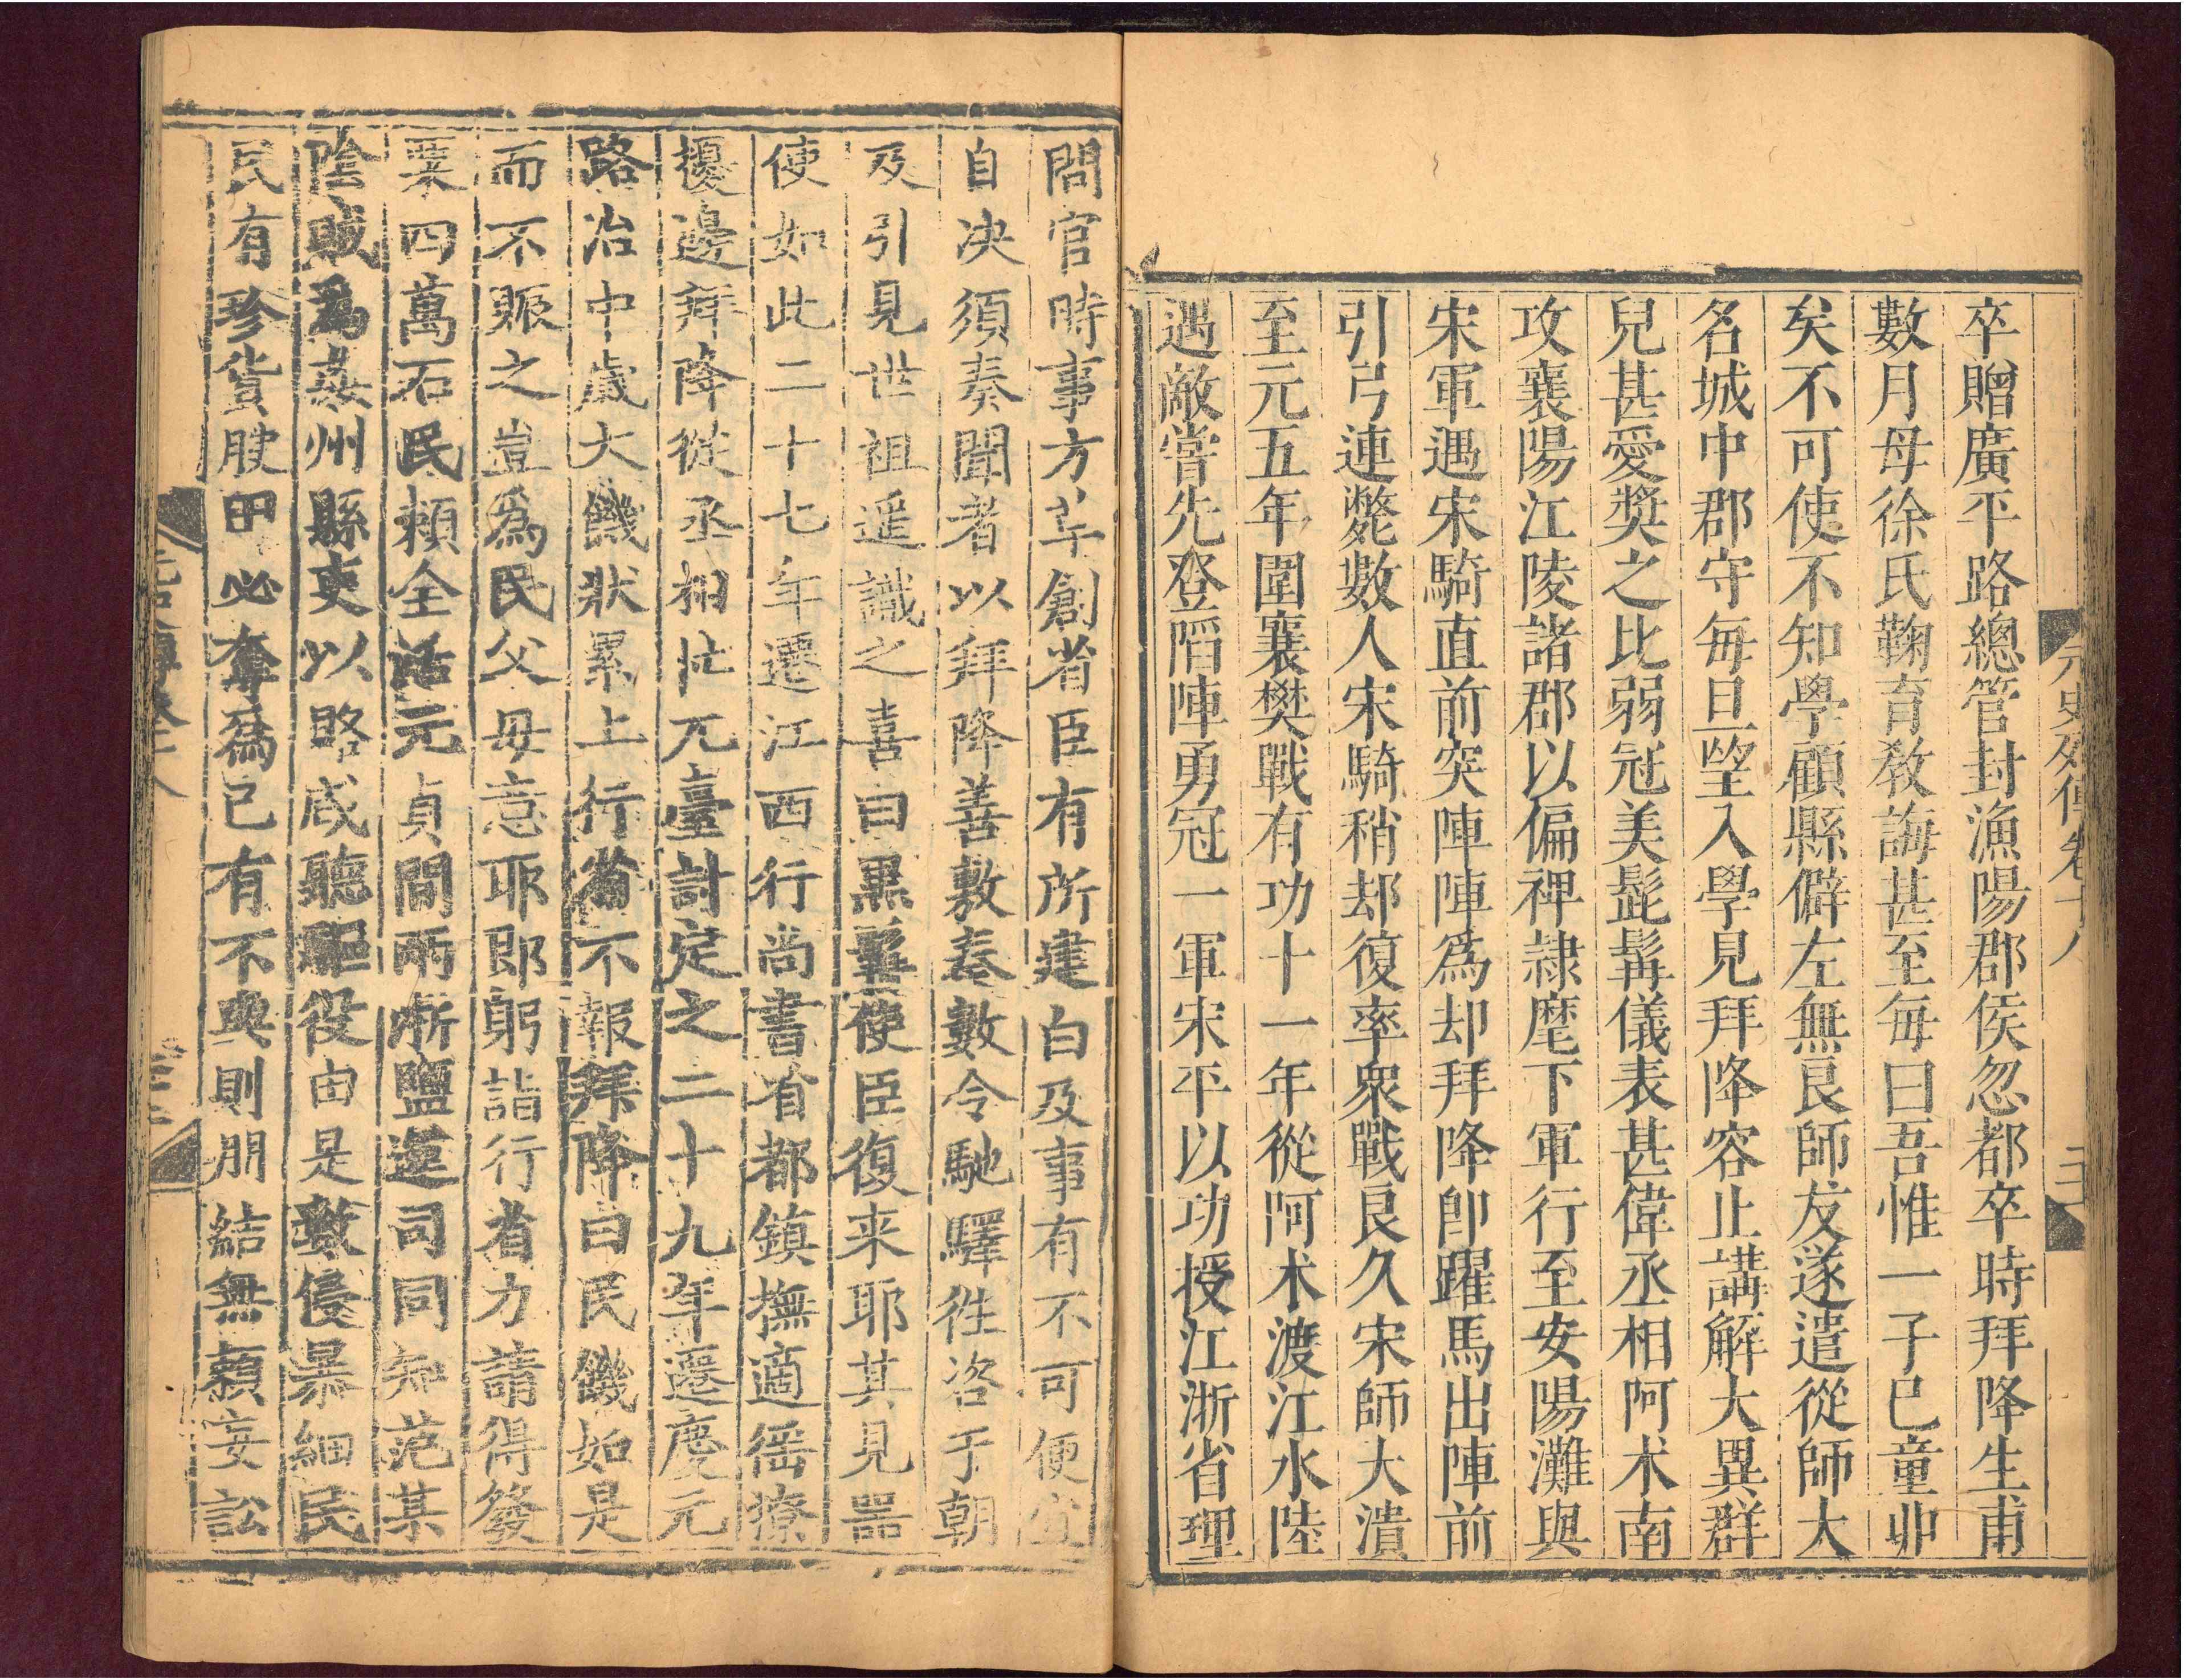 元史列傳卷十八
卒贈廣平路總管封漁陽郡侯忽都卒時拜降生甫
數月母徐氏鞠育教誨甚至每曰吾惟一子已童丱
矣不可使不知學顧縣僻左無良師友遂遣從師大
名城中郡守每旦望入學見拜降容止講解大異群
兒甚愛奬之比弱冠美髭髯儀表甚偉丞相阿术南
攻襄陽江陵諸郡以偏裨隷麾下軍行至安陽灘與
宋軍遇宋騎直前突陣陣爲却拜降卽躍馬出陣前
引弓連斃數人宋騎稍却復率衆戰良久宋師大潰
至元五年圍襄樊戰有功十一年從阿术渡江水陸
遇敵嘗先登䧟陣勇冠一軍宋平以功授江浙省理
問官時事方草創省臣有所建白及事有不可便宜
自决須奏聞者以拜降善敷奏數令馳驛徃咨于朝
及引見世祖遥識之喜曰黑髯使臣復来耶其見器
使如此二十七年遷江西行尚書省都鎮撫適徭獠
擾邊拜降從丞相忙兀臺討定之二十九年遷慶元
路治中歲大饑狀累上行省不報拜降曰民饑如是
而不賑之豈爲民父母意耶即躬詣行省力請得發
粟四萬石民頼全活元貞間兩浙鹽運司同知范某
隂賊爲姦州縣吏以賂咸聽驅役由是數侵暴細民
民有珍貨腴田必奪爲已有不與則朋結無頼妄訟